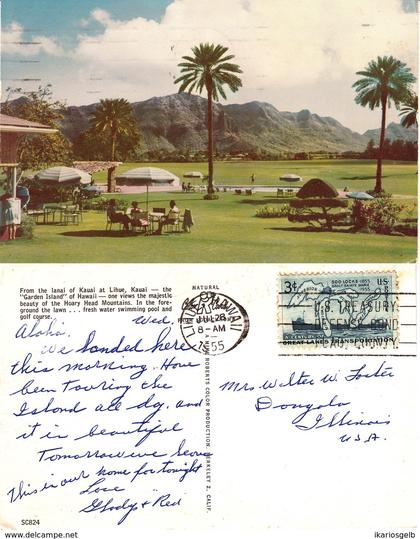 From the lanai of Kauai at Lihue, Kauai — the
"Garden Island" of Hawaii — one views the majestic
beauty of the Hoary Head Mountains. In the fore-
ground the lawn . . . fresh water swimming pool and
golf course.
NATURAL
LIHUE HAWAII
JUL 28
8-AM
1955
3¢
SOO LOCKS
1855
1955
US
GREAT LAKES TRANSPORTATION
U.S. TREASURY
DEFENSE BOND
Wed,
Aloha,
We landed here
this morning. Have
been touring the
Island all day, and
it is beautiful
Tomorrow we leave
This is our home for tonight
Love
Gladys & Red
MIKE ROBERTS COLOR PRODUCTION, BERKELEY 2, CALIF.
Mr. Walter W. Foster
Dongola
Illinois
U.S.A.
SC824
https://www.delcampe.net
ikariosgelb